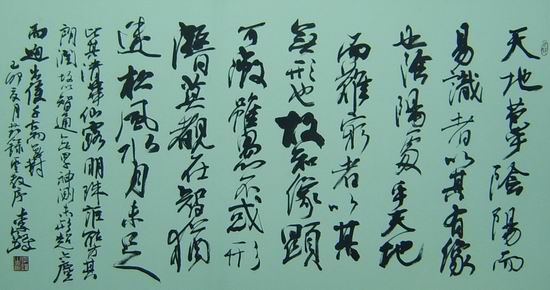 天地苞乎陰陽而
易識者以其有像
也陰陽處乎天地
而難窮者以其
無形也故知像顯
可徵雖愚不惑形
潛莫覩在智猶
迷松風水月未足
比其清華仙露明珠詎能方其
朗潤故以智通無累神測未形超六塵
而迥出
月錄聖教序 李